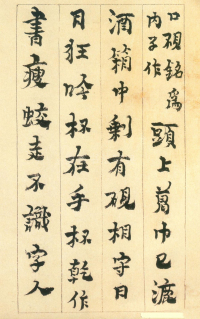 口硯銘為
內子作
頭上葛巾已漉
酒箱中剩有硯相守日
日狂吟杯在手杯乾作
書瘦蛟走不識字人